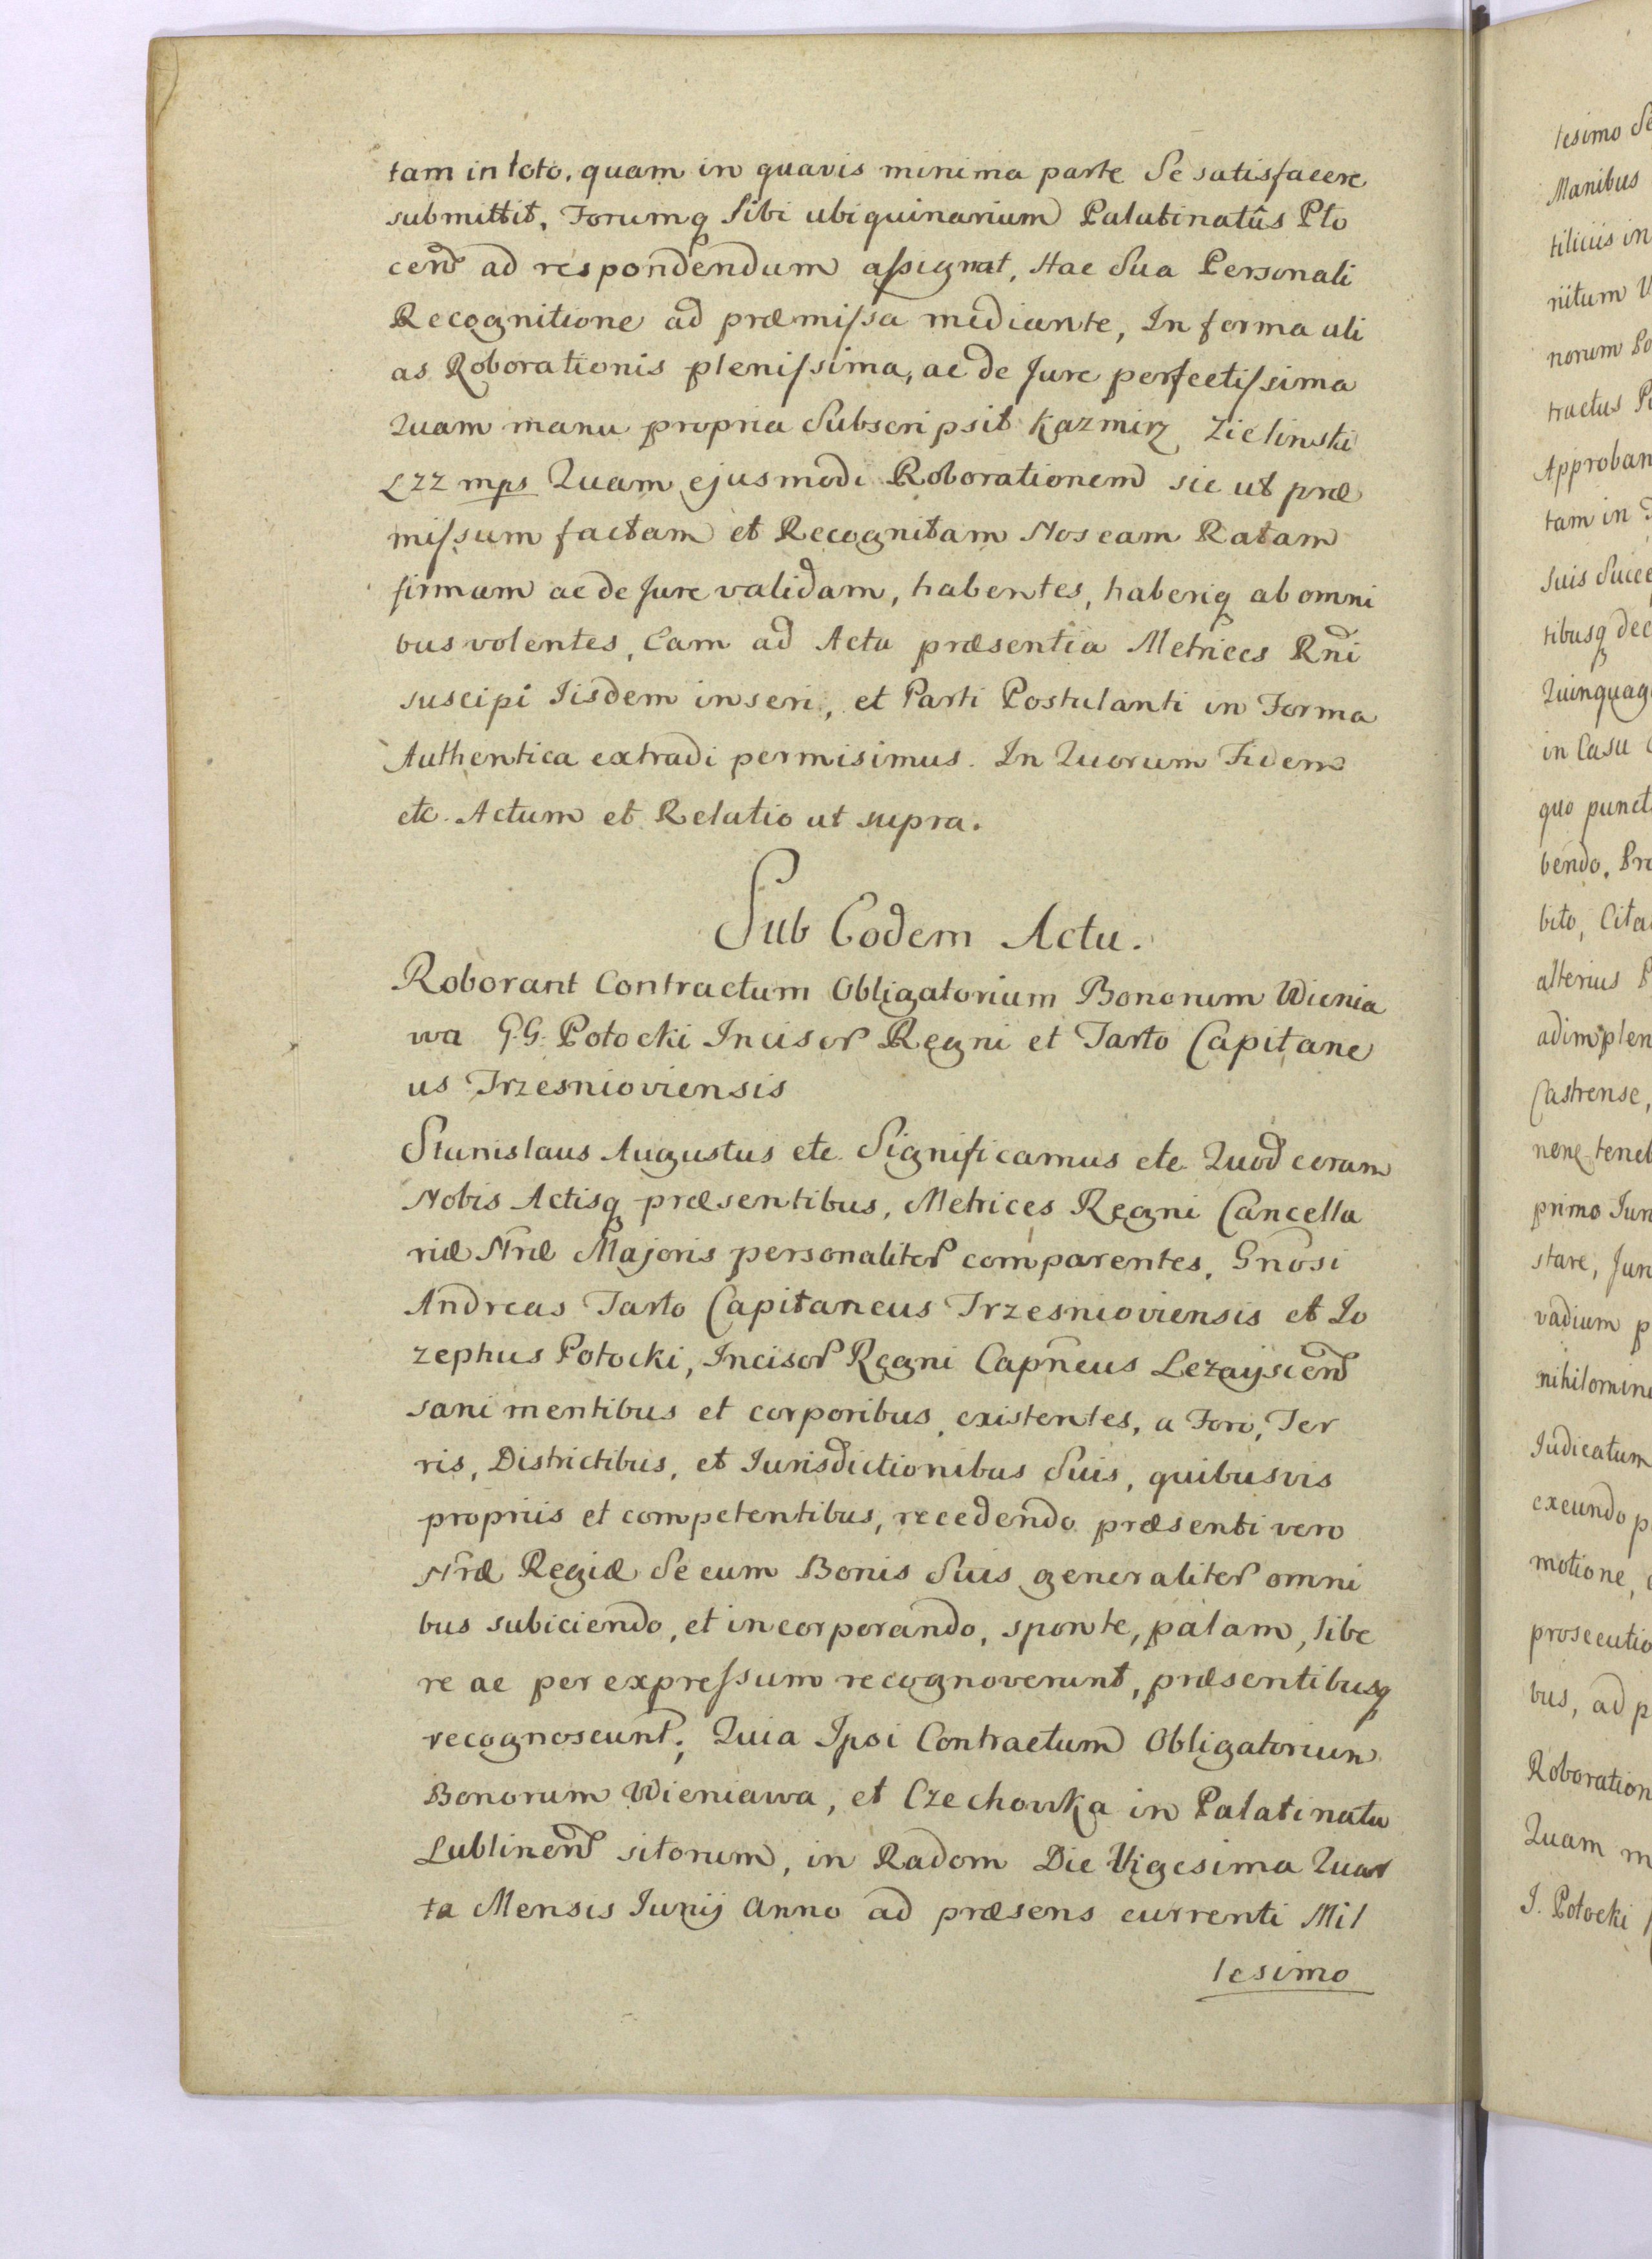 tam in toto, quam in quavis minima parte Se satisfacere
submittit, Forumq Sibi ubiquinarium Palatinatûs Plo
cen̄ ad respondendum assignat, Hac Sua Personali
Recognitione ad præmissa mediante, In forma ali
as Roborationis plenissima, ac de Jure perfectissima
Quam manu propria Subscripsit Kazmirz Zielinski
Ł Z Z mps Quam ejusmodi Roborationem sic ut præ
missum factam et Recognitam Nos eam Ratam
firmam ac de Jure validam, habentes, haberiq ab omni
bus volentes, Eam ad Acta præsentia Metrices Rn̄i
suscipi Iisdem inseri, et Parti Postulanti in Forma
Authentica extradi permisimus. In Quorum Fidem
etc. Actum et Relatio ut supra.
Sub Eodem Actu.
Roborant Contractum Obligatorium Bonorum Wienia
wa G.G. Potocki Incisor Regni et Tarło Capitane
us Trzesnioviensis
Stanislaus Augustus etc. Significamus etc. Quod coram
Nobis Actisq præsentibus, Metrices Regni Cancella
riæ Nr̄æ Majoris personaliter comparentes, Gn̄osi
Andreas Tarło Capitaneus Trzesnioviensis et Jo
zephus Potocki, Incisor Regni Capn̄eus Lezayscen̄
sani mentibus et corporibus existentes, a Foro, Ter
ris, Districtibus, et Iurisdictionibus Suis, quibusvis
propriis et competentibus, recedendo præsenti vero
Nr̄æ Regiæ Se cum Bonis Suis generaliter omni
bus subiciendo, et incorporando, sponte, palam, libe
re ac per expressum recognoverunt, præsentibusq
recognoscunt; Quia Ipsi Contractum Obligatorium
Bonorum Wieniawa, et Czechowka in Palatinatu
Lublinen̄ sitorum, in Radom Die Vigesima Quar
ta Mensis Junij Anno ad præsens currenti Mil
lesimo
tesimo
Manibus
tiliciis in
nitum
norum
tractus
Approban
tam in
Suis Succe
tibusq dec
Quinquag
in Casu
quo punct
bendo,
bito, Cita
alterius
adimplen
Castrense,
nene teneb
primo Iur
stare, Jur
vadium p
nihilomin
Judicatum
exeundo p
motione,
prosecutio
bus, ad p
Roboration
Quam m
J. Potocki